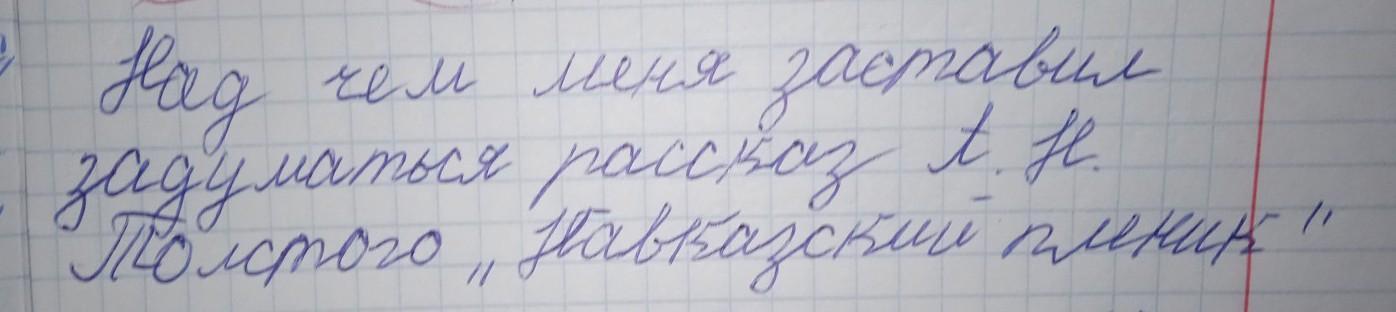 Над чем меня заставил
задуматься рассказ Л. Н.
Толстого „Кавказский пленик"